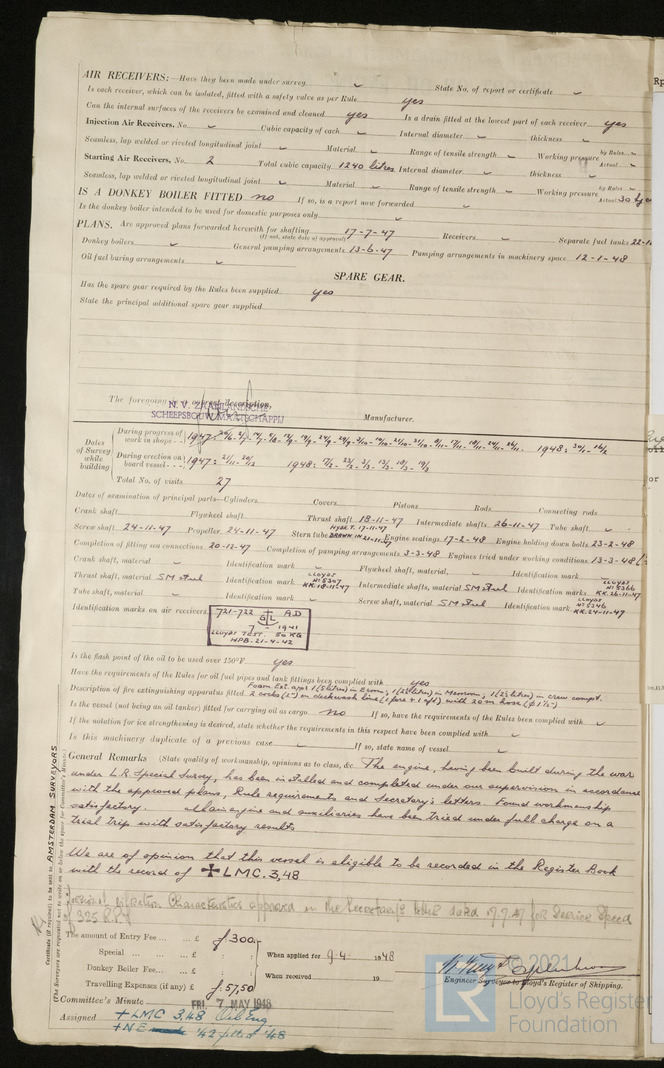 AIR RECEIVERS:—Have they been made under survey ✓ State No. of report or certificate ✓
Is each receiver, which can be isolated, fitted with a safety valve as per Rule yes
Can the internal surfaces of the receivers be examined and cleaned yes Is a drain fitted at the lowest part of each receiver yes
Injection Air Receivers, No. ✓ Cubic capacity of each ✓ Internal diameter ✓ thickness ✓
Seamless, lap welded or riveted longitudinal joint ✓ Material ✓ Range of tensile strength ✓ Working pressure by Rules ✓ Actual ✓
Starting Air Receivers, No. 2 Total cubic capacity 1240 litres Internal diameter ✓ thickness ✓
Seamless, lap welded or riveted longitudinal joint ✓ Material ✓ Range of tensile strength ✓ Working pressure by Rules ✓ Actual 30
IS A DONKEY BOILER FITTED no If so, is a report now forwarded ✓
Is the donkey boiler intended to be used for domestic purposes only ✓
PLANS. Are approved plans forwarded herewith for shafting 17-7-47 Receivers ✓ Separate fuel tanks 22-1
(If not, state date of approval)
Donkey boilers ✓ General pumping arrangements 13-6-47 Pumping arrangements in machinery space 12-1-48
Oil fuel burning arrangements ✓
SPARE GEAR.
Has the spare gear required by the Rules been supplied yes
State the principal additional spare gear supplied
The foregoing is a correct description,
N.V. ZAANLANDSCHE
SCHEEPSBOUW MAATSCHAPPIJ Manufacturer.
Dates of Survey while building
During progress of work in shops - - 1947: 1948: 30/1 - 16/2
During erection on board vessel - - - 1947: 21/11 20/12 1948: 17/2 23/2 3/3 13/3
Total No. of visits 27
Dates of examination of principal parts—Cylinders Covers Pistons Rods Connecting rods
Crank shaft Flywheel shaft Thrust shaft 18-11-47 Intermediate shafts 26-11-47 Tube shaft ✓
Screw shaft 24-11-47 Propeller 24-11-47 Stern tube HYDR T. 17-11-47 DRAWN IN 21-11-47 Engine seatings 17-2-48 Engine holding down bolts 23-2-48
Completion of fitting sea connections 20-12-47 Completion of pumping arrangements 3-3-48 Engines tried under working conditions 13-3-48
Crank shaft, material ✓ Identification mark ✓ Flywheel shaft, material ✓ Identification mark ✓
Thrust shaft, material SM steel Identification mark LLOYDS No 5307 KK.18-11-47 Intermediate shafts, material SM steel Identification marks LLOYDS No 5366 KK.26-11-47
Tube shaft, material ✓ Identification mark ✓ Screw shaft, material SM steel Identification mark LLOYDS No 5346 KK.24-11-47
Identification marks on air receivers 721-722 GL AD
7 - 1941
LLOYDS TEST. 50 KG
WPB. 21-4-42
Is the flash point of the oil to be used over 150°F. yes
Have the requirements of the Rules for oil fuel pipes and tank fittings been complied with yes
Description of fire extinguishing apparatus fitted Foam Ext. app. 1 (5 litres) in E room, 1 (2½ litres) in Messroom, 1 (2½ litres) in crew compt.
2 cocks (2") on deckwash line (1 fore + 1 aft) with 20 m hose (ϕ 1½")
Is the vessel (not being an oil tanker) fitted for carrying oil as cargo no If so, have the requirements of the Rules been complied with ✓
If the notation for ice strengthening is desired, state whether the requirements in this respect have been complied with ✓
Is this machinery duplicate of a previous case ✓ If so, state name of vessel ✓
General Remarks (State quality of workmanship, opinions as to class, &c. The engine, having been built during the war
under LR Special Survey, has been installed and completed under our supervision in accordance
with the approved plans, Rule requirements and Secretary's letters. Found workmanship
satisfactory. Main engine and auxiliaries have been tried under full charge on a
trial trip with satisfactory results
We are of opinion that this vessel is eligible to be recorded in the Register Book
with the record of ✠LMC. 3,48
Torsional vibration Characteristics approved in the Secretary's letter dated 17.7.47 for Service Speed
of 325 R.P.M
Certificate (if required) to be sent to AMSTERDAM SURVEYORS
(The Surveyors are requested not to write on or below the space for Committee's Minute.)
The amount of Entry Fee ... £ ƒ.300,- When applied for 9-4- 1948
Special ... ... £
Donkey Boiler Fee... ... £ When received 19
Travelling Expenses (if any) £ ƒ.57,50
Engineer Surveyor to Lloyd's Register of Shipping.
Committee's Minute FRI. 7 MAY 1948
Assigned +LMC 3,48 Oil Eng
+NE made '42 fitted '48
© 2021
LR
Lloyd's Register
Foundation
Rp
or